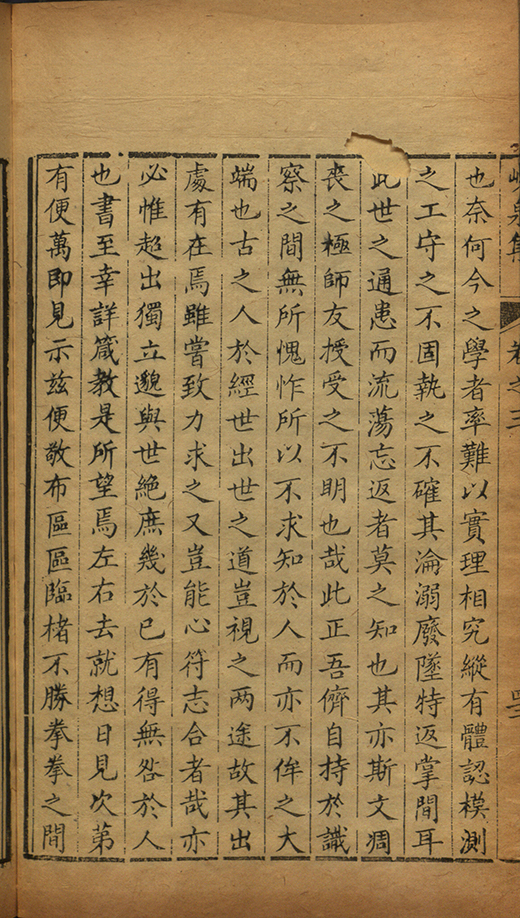 峴泉集
卷之三
也奈何今之學者率難以實理相究縱有體認模測
之工守之不固執之不確其淪溺廢墜特返掌間耳
此世之通患而流蕩忘返者莫之知也其亦斯文凋
喪之極師友授受之不明也哉此正吾儕自持於識
察之間無所愧怍所以不求知於人而亦不侔之大
端也古之人於經世出世之道豈視之两途故其出
處有在焉雖嘗致力求之又豈能心符志合者哉亦
必惟超出獨立邈與世絶庶幾於已有得無咎於人
也書至幸詳箴教是所望焉左右去就想日見次第
有便萬即見示兹便敬布區區臨楮不勝拳拳之間